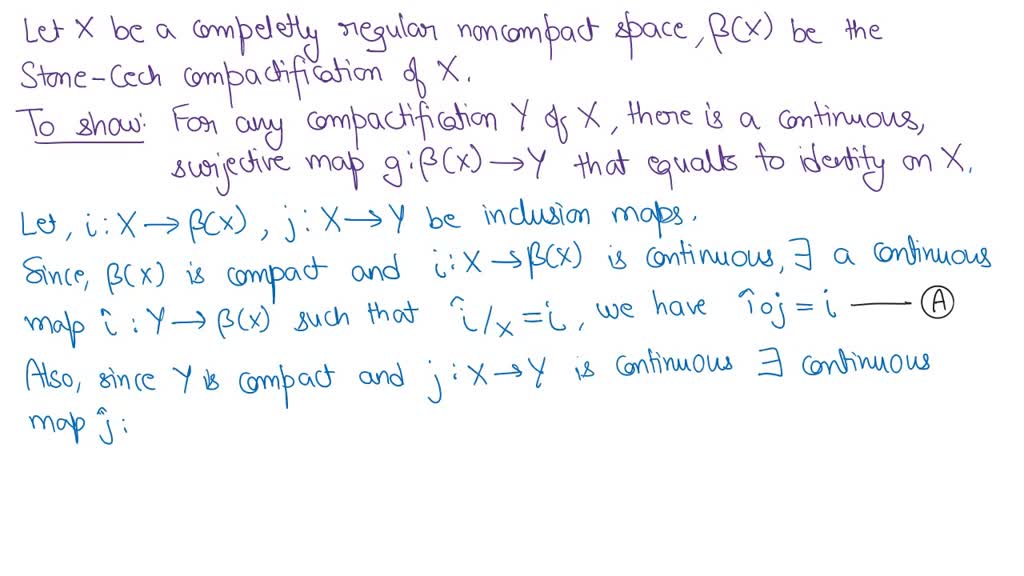 Let X be a compeletly regular noncompact space, β(X) be the
Stone-Cech compactification of X.
To show: For any compactification Y of X, there is a continuous,
surjective map g: β(X) → Y that equalts to identity on X.
Let, i: X → β(X), j: X → Y be inclusion maps.
Since, β(X) is compact and i: X → β(X) is continuous, ∃ a continuous
map î : Y → β(X) such that î/x = i, we have î o j = i —— Ⓐ
Also, since Y is compact and j: X → Y is continuous ∃ continuous
map ĵ :